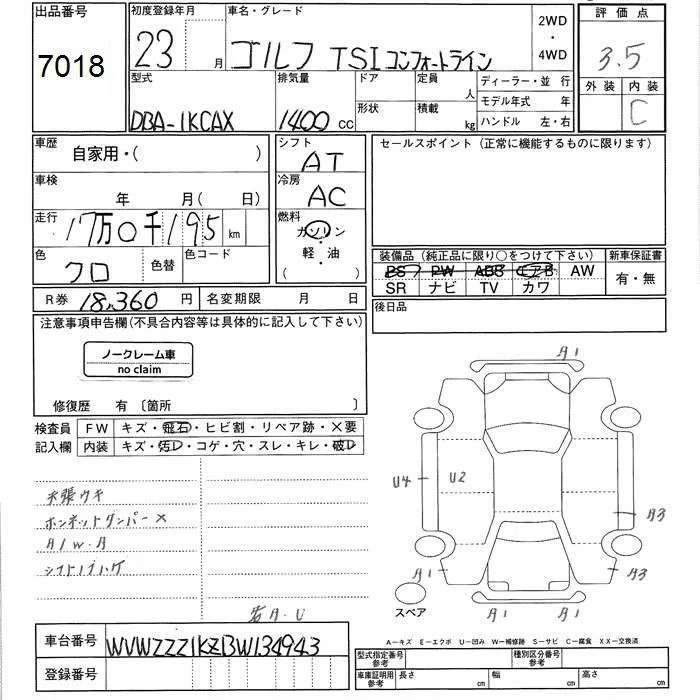 出品番号 7018
初度登録年月 23 月
車名・グレード ゴルフ TSIコンフォートライン
2WD・4WD
評価点 3.5
外装 内装 C
型式 DBA-1KCAX
排気量 1400 CC
ドア
形状
定員 人
積載 kg
ディーラー・並行
モデル年式 年
ハンドル 左・右
車歴 自家用・( )
シフト AT
セールスポイント(正常に機能するものに限ります)
車検 年 月( 日)
冷房 AC
走行 17万0千195 km
燃料 ガソリン・軽・油 ( )
色 クロ 色替 色コード
装備品(純正品に限り○をつけて下さい) 新車保証書
PS PW ABS エアB AW 有・無
SR ナビ TV カワ
R券 18,360 円 名変期限 月 日
後日品
注意事項申告欄(不具合内容等は具体的に記入して下さい)
ノークレーム車
no claim
修復歴 有〔箇所 〕
検査員 FW キズ・飛石・ヒビ割・リペア跡・×要
記入欄 内装 キズ・汚D・コゲ・穴・スレ・キレ・破D
天張ウキ
ボンネットダンパー×
A/W.A
シフトノブハゲ
A1
U4 U2
A3
A1 A3
スペア
A1 A1
A・U
A-キズ E-エクボ U-凹み W-補修跡 S-サビ C-腐食 XX-交換済
車台番号 WVWZZZ1KZBW134943
登録番号
型式指定番号 参考 種別区分番号 参考
車庫証明用 参考 長さ cm 幅 cm 高さ cm